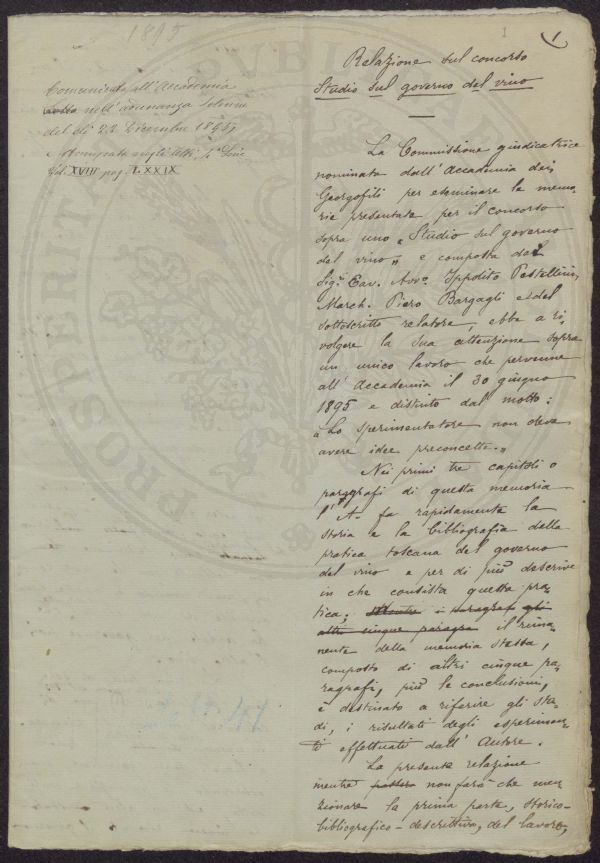 1895
1
1
Comunicata all'Accademia
letta nell'adunanza solenne
del dì 22 Dicembre 1895,
Stampata negli Atti, 4ª Serie
Vol. XVIII pag. LXXIX
Relazione sul concorso
Studio sul governo del vino
La Commissione giudicatrice
nominata dall'Accademia dei
Georgofili per esaminare le memo-
rie presentate per il concorso
sopra uno "Studio sul governo
del vino" e composta dal
Sigr. Cav. Avvo. Ippolito Pestellini,
March. Piero Bargagli e del
sottoscritto relatore, ebbe a ri-
volgere la sua attenzione sopra
un unico lavoro che pervenne
all'Accademia il 30 giugno
1895 e distinto dal motto:
"Lo sperimentatore non deve
avere idee preconcette."
Nei primi tre capitoli o
paragrafi di questa memoria
l'A. fa rapidamente la
storia e la bibliografia della
pratica toscana del governo
del vino e per di più descrive
in che consista questa pra-
tica; Mentre i paragraf gli
altri cinque paragra il rima-
nente della memoria stessa,
composto di altri cinque pa-
ragrafi, più le conclusioni,
è destinato a riferire gli stu-
di, i risultati degli esperimen-
ti effettuati dall'Autore.
La presente relazione
mentre non farà che men-
zionare la prima parte, storico-
bibliografico-descrittiva, del lavoro,